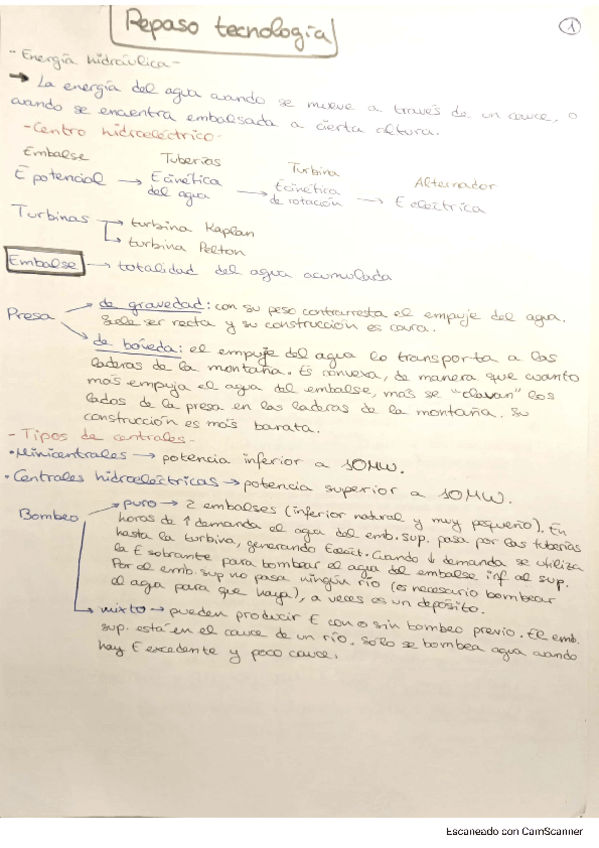 Repaso tecnología
1
- Energía hidráulica -
→ La energía del agua cuando se mueve a través de un cauce, o
cuando se encuentra embalsada a cierta altura.
- Centro hidroeléctrico -
Embalse Tuberías Turbina Alternador
E potencial → E cinética del agua → E cinética de rotación → E eléctrica
Turbinas → turbina Kaplan
→ turbina Pelton
Embalse → totalidad del agua acumulada
Presa → de gravedad: con su peso contrarresta el empuje del agua.
Suele ser recta y su construcción es cara.
→ de bóveda: el empuje del agua lo transporta a las
laderas de la montaña. Es convexa, de manera que cuanto
más empuja el agua del embalse, más se "clavan" los
lados de la presa en las laderas de la montaña. Su
construcción es más barata.
- Tipos de centrales -
• Minicentrales → potencia inferior a 10MW.
• Centrales hidroeléctricas → potencia superior a 10MW.
Bombeo → puro → 2 embalses (inferior natural y muy pequeño). En
horas de ↑ demanda el agua del emb. sup. pasa por las tuberías
hasta la turbina, generando Eeléct. Cuando ↓ demanda se utiliza
la E sobrante para bombear el agua del embalse inf. al sup.
Por el emb. sup no pasa ningún río (es necesario bombear
el agua para que haya), a veces es un depósito.
→ mixto → pueden producir E con o sin bombeo previo. El emb.
sup. está en el cauce de un río. Sólo se bombea agua cuando
hay E excedente y poco cauce.
Escaneado con CamScanner